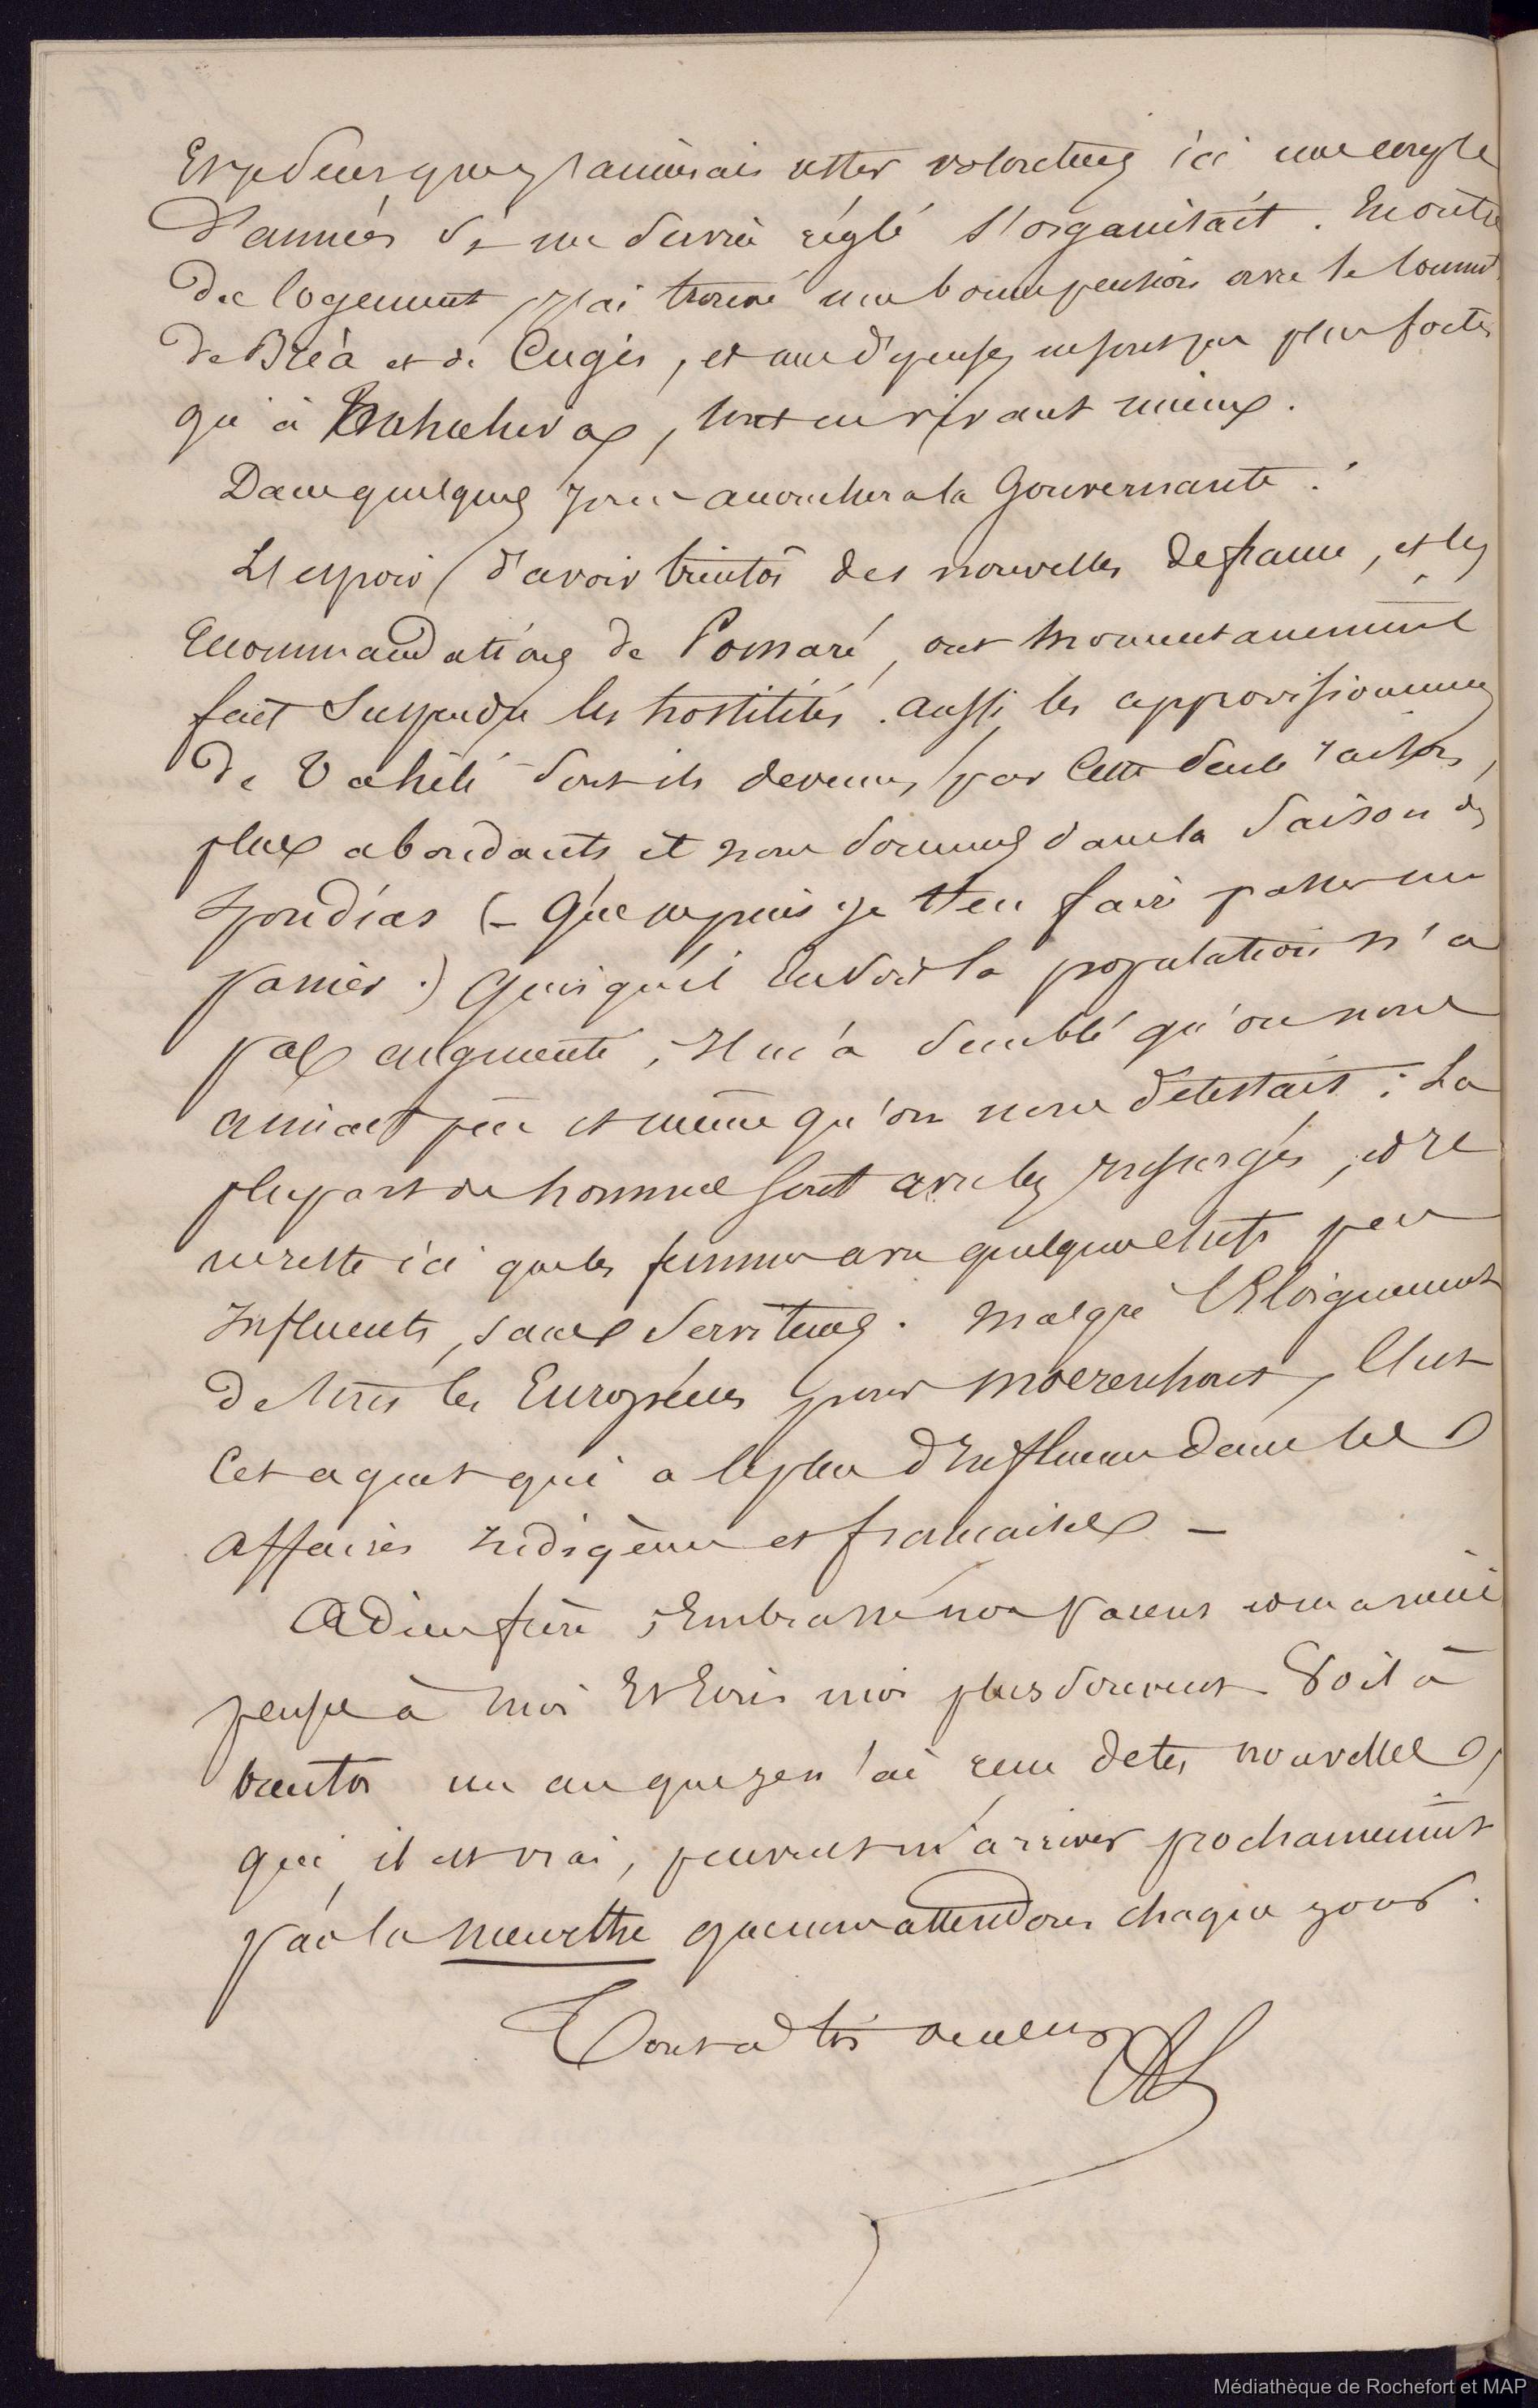 que j'aimerais rester volontiers ici une couple
d'années si un service réglé s'organisait. En outre
de logement, j'ai trouvé une bonne pension avec le
de Bréa et de Cugis, et mes dépenses ne sont pas plus fortes
qu'à , tout en vivant mieux.
Dans quelques jours accouchera la Gouvernante.
L'espoir d'avoir bientôt des nouvelles de france, et les
recommandations de Pomaré, ont momentanément
fait suspendre les hostilités. aussi les approvisionnements
de sont ils devenus, par cette seule raison,
plus abondants, et nous sommes dans la saison des
spondias (- que ne puis je t'en faire passer un
panier.) quoiqu'il en soit la population n'a
pas augmenté, Il m'a semblé qu'on nous
aimait peu et même qu'on nous détestait: La
plupart des hommes sont avec les Insurgés, et il
ne reste ici que les femmes avec quelques chefs peu
Influents, sans serviteurs. Malgré l'Eloignement
de tous les Européens pour Moerenhout, C'est
Cet agent qui a le plus d'Influence dans les
affaires Indigènes et françaises -
Adieu frère, Embrasse nos parens
pense à moi Et Ecris moi plus souvent. Voilà
bientôt un an que je n'ai reçu de tes nouvelles,
qui, il est vrai, peuvent m'arriver prochainement
par la meurthe que nous attendons chaque jour.
Tout à toi